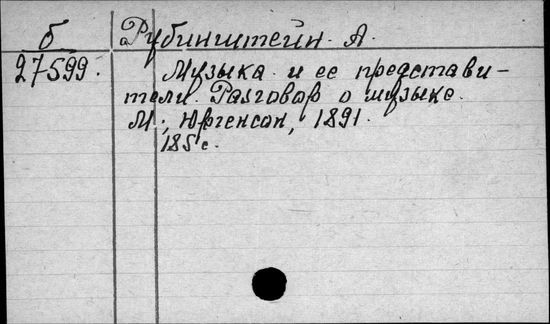 б
27599.
Рубинштейн. А.
Музыка и ее представи-
тели. Разговор о музыке.
М., Юргенсон, 1891.
185 с.